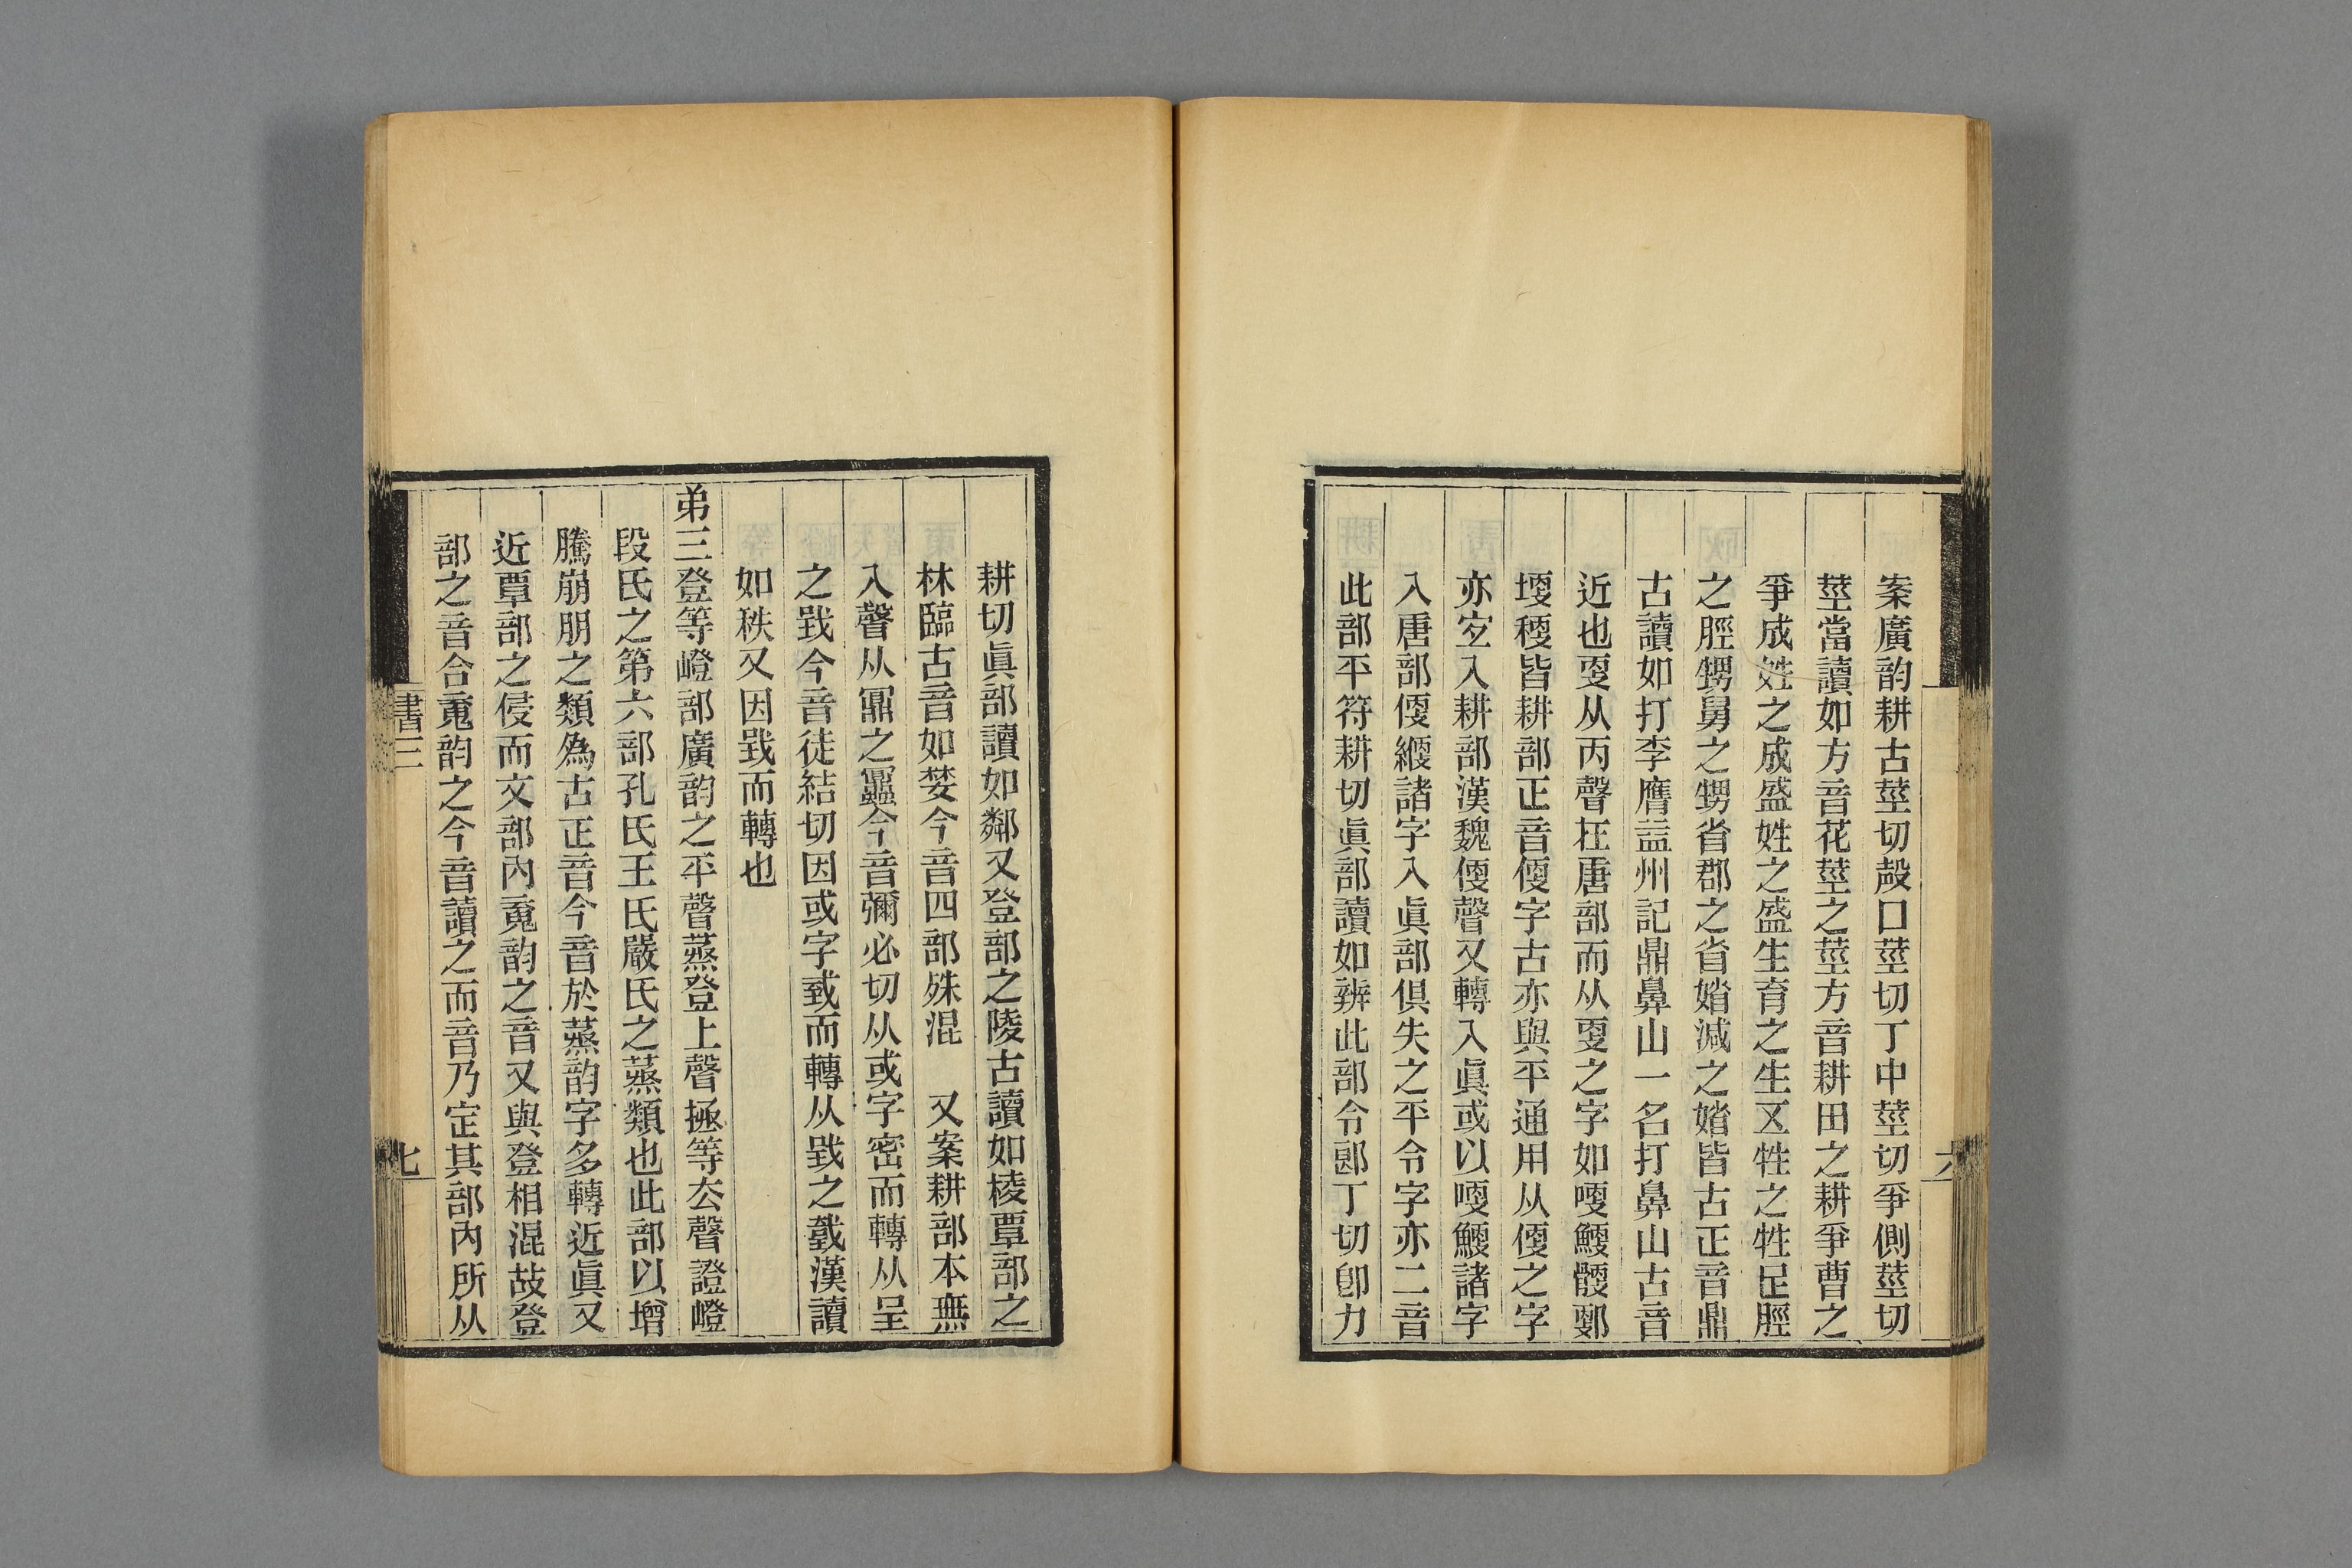 案廣韵耕古莖切㱿口莖切丁中莖切爭側莖切
莖當讀如方音花莖之莖方音耕田之耕爭曹之
爭成姓之成盛姓之盛生育之生又牲之牲足脛
之脛甥舅之甥省郡之省婚減之婚皆古正音鼎
古讀如打李膺益州記鼎鼻山一名打鼻山古音
近也㪅从丙聲在唐部而从㪅之字如哽鯁骾郠
埂稉皆耕部正音㥓字古亦與平通用从㥓之字
亦宐入耕部漢魏㥓聲又轉入眞或以哽鯁諸字
入唐部㥓緶諸字入眞部俱失之平令字亦二音
此部平符耕切眞部讀如辨此部令郞丁切卽力
耕切眞部讀如鄰又登部之陵古讀如棱覃部之
林臨古音如婪今音四部殊混 又案耕部本無
入聲从鼏之鼏今音彌必切从或字密而轉从呈
之𢧜今音徒結切因或字𢧜而轉从𢧜之𢧤漢讀
如秩又因𢧜而轉也
弟三登等嶝部廣韵之平聲蒸登上聲拯等去聲證嶝
段氏之第六部孔氏王氏嚴氏之蒸類也此部以增
騰崩朋之類爲古正音今音於蒸韵字多轉近眞又
近覃部之侵而文部內䰟韵之音又與登相混故登
部之音合䰟韵之今音讀之而音乃定其部內所从
書三
七
六